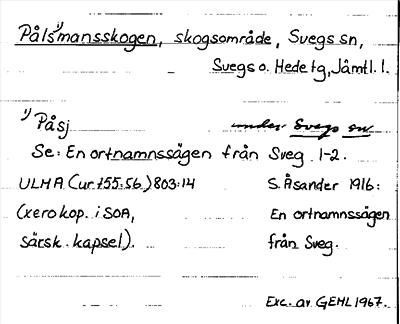 Påls¹⁾mansskogen, skogsområde, Svegs sn,
Svegs o. Hede tg, Jämtl. l.
¹⁾ Påsj
under Svegs sn
Se: En ortnamnssägen från Sveg 1-2.
ULMA (ur 155:56.) 803:14
(xerokop. i SOA,
särsk. kapsel).
S. Åsander 1916:
En ortnamnssägen
från Sveg.
Exc. av GEHL 1967.